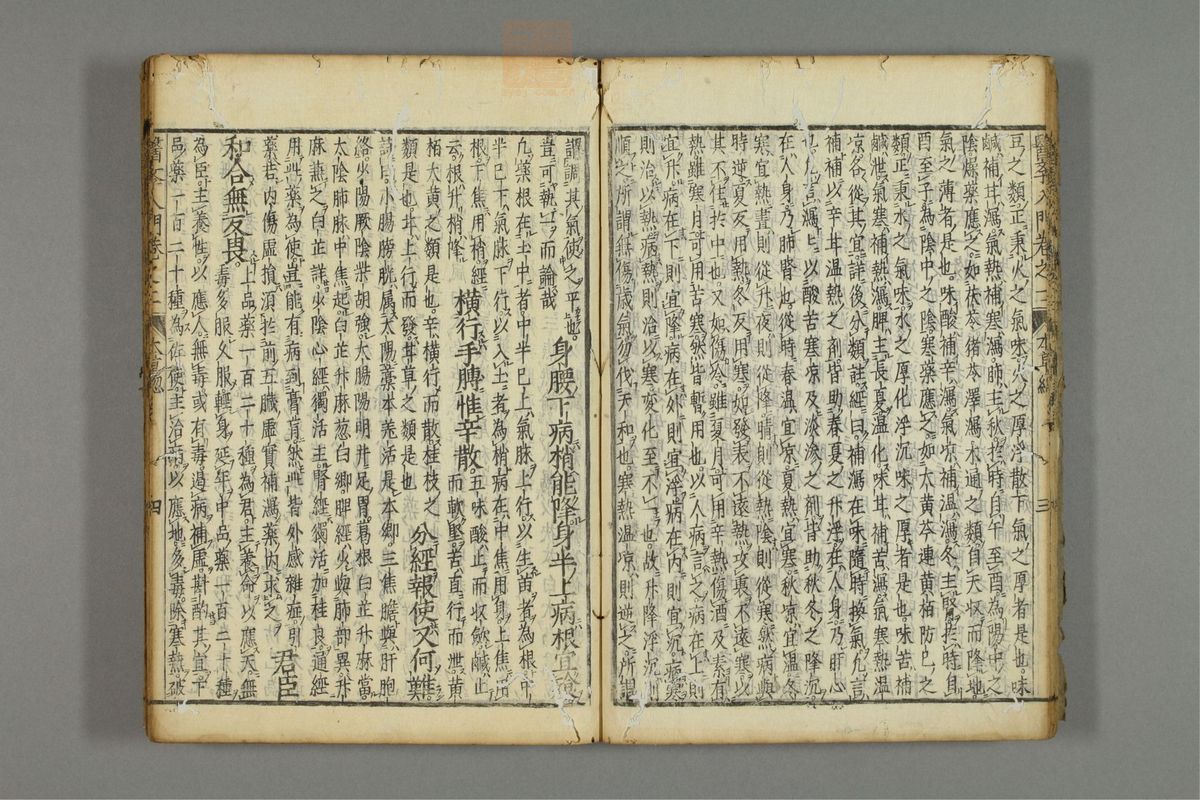 豆之類正秉火之氣味火之厚浮散下氣之厚者是也味
鹹補甘瀉氣熱補寒瀉肺主秋於時自午至酉為陽中之
陰燥藥應之如茯苓猪苓澤瀉木通之類自天以而降地
氣之薄者是也味酸補辛瀉氣凉補溫瀉冬主腎於時自
酉至子為陰中之陰寒藥應之如大黄芩連黄栢防巳之
類正秉水之氣味水之厚化浮沉味之厚者是也味苦補
鹹泄氣寒補熱瀉脾主長夏溫化味甘補苦瀉氣寒熱溫
凉各從其宜詳後分類註經曰補瀉在味隨時換氣九言
補補以辛甘溫熱之劑皆助春夏之升浮在人身乃肝心
也九言瀉瀉以酸苦寒凉及淡滲之劑皆助秋冬之降沉
在人身乃肺腎也從時春溫宜凉夏熱宜寒秋凉宜溫冬
寒宜熱晝則從升夜則從降晴則從熱陰則從寒然病與
時逆夏反用熱冬反用寒如發表不遠熱攻裏不遠寒以
其不住於中也又如傷冷雖夏月可用辛熱傷酒及素有
熱雖寒月可用苦寒然皆暫用也以人病言之病在上則
宜升病在下則宜降病在外則宜浮病在內則宜沉病寒
則治以熱病熱則治以寒变化至不一也故升降浮沉則
順之所謂無伐歲氣勿伐天和也寒熱溫凉則逆之所謂
調調其氣使之平也身腰下病梢能降身半上病根宜
豈可執一而論哉
九藥根在土中者中半已上氣脉上行以生苗者為根中
半已下氣脉下行以入土者為梢病在中焦用身上焦用
根下焦用梢經云根升梢降橫行手膊惟辛散五味酸止而收歛鹹止
而軟堅苦直行而泄黄
栢大黄之類是也辛橫行而散桂枝之
類是也甘上行而發甘草之類是也分經報使又何難
詩曰小腸膀胱属太陽藁本羌活是本鄉三焦膽與肝胞
絡少陽厥陰柴胡強大腸陽明并足胃葛根白芷升麻當
太陰肺脉中焦起白芷升麻葱白鄉脾經少與肺部異升
麻兼之白芷詳少陰心經獨活主腎經獨活加桂良通經
用此藥為使豈能有病到膏肓然此皆外感雜症引
藥若內傷虛損須於前五臟虛實補瀉藥內求之君臣
和合無反畏上品藥一百二十種為君主養命以應天無
毒多服久服輕身延年中品藥一百二十種
為臣主養性以應人無毒或有毒遏病補虛斟酌其宜下
品藥一百二十種為佐使主治病以應地多毒除寒熱破